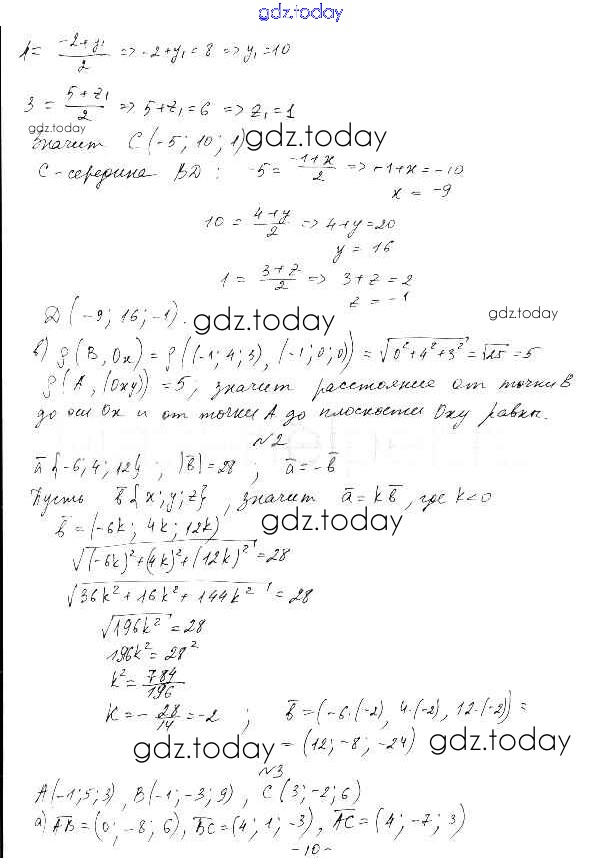 gdz.today
1 = (-2+y₁)/2 => -2+y₁=8 => y₁=10
3 = (5+z₁)/2 => 5+z₁=6 => z₁=1
gdz.today
Значит C(-5; 10; 1)
gdz.today
C-середина BD: -5 = (-1+x)/2 => -1+x = -10
x = -9
10 = (4+y)/2 => 4+y=20
y = 16
1 = (3+z)/2 => 3+z=2
z = -1
D(-9; 16; -1).
gdz.today
gdz.today
в) ρ(B, Ox) = ρ((-1; 4; 3), (-1; 0; 0)) = √(0²+4²+3²) = √25 = 5
ρ(A, (Oxy)) = 5, значит расстояние от точки B
до оси Ox и от точки A до плоскости Oxy равны.
№2
a̅{-6; 4; 12}; |b̅|=28; a̅=-b̅
Пусть b̅{x; y; z}, значит a̅=kb̅, где k<0
b̅=(-6k; 4k; 12k)
gdz.today
√((-6k)²+(4k)²+(12k)²)=28
√(36k²+16k²+144k²)=28
√(196k²)=28
196k²=28²
k²=784/196
k=-28/14=-2; b̅=(-6·(-2), 4·(-2), 12·(-2))=
=(12; -8; -24)
gdz.today
gdz.today
№3
A(-1; 5; 3), B(-1; -3; 9), C(3; -2; 6)
а) AB̅=(0; -8; 6), BC̅=(4; 1; -3), AC̅=(4; -7; 3)
-10-